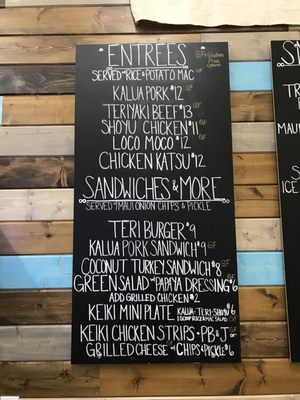 ENTREES
GF=Gluten
Free
Option
SERVED W/RICE & POTATO MAC GF
KALUA PORK $12 GF
TERIYAKI BEEF $13 GF
SHOYU CHICKEN $11 GF
LOCO MOCO $12 GF
CHICKEN KATSU $12
SANDWICHES & MORE
SERVED W/MAUI ONION CHIPS & PICKLE
TERI BURGER $9
KALUA PORK SANDWICH $9 GF
COCONUT TURKEY SANDWICH $8 GF
GREEN SALAD W/PAPAYA DRESSING $6
ADD GRILLED CHICKEN $2
KEIKI MINI PLATE KALUA-TERI-SHOYU $6
1 SCOOP RICE & MAC SALAD GF
KEIKI CHICKEN STRIPS - PB & J OR
GRILLED CHEESE W/CHIPS & PICKLE $6